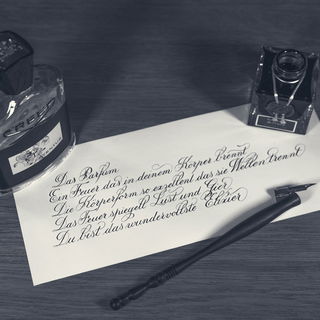 CREED
Das Parfum
Ein Feuer das in deinem Körper brennt
Die Körperform so exzellent das sie Welten trennt
Das Feuer spiegelt Lust und Gier
Du bist das wundervollste Elixier